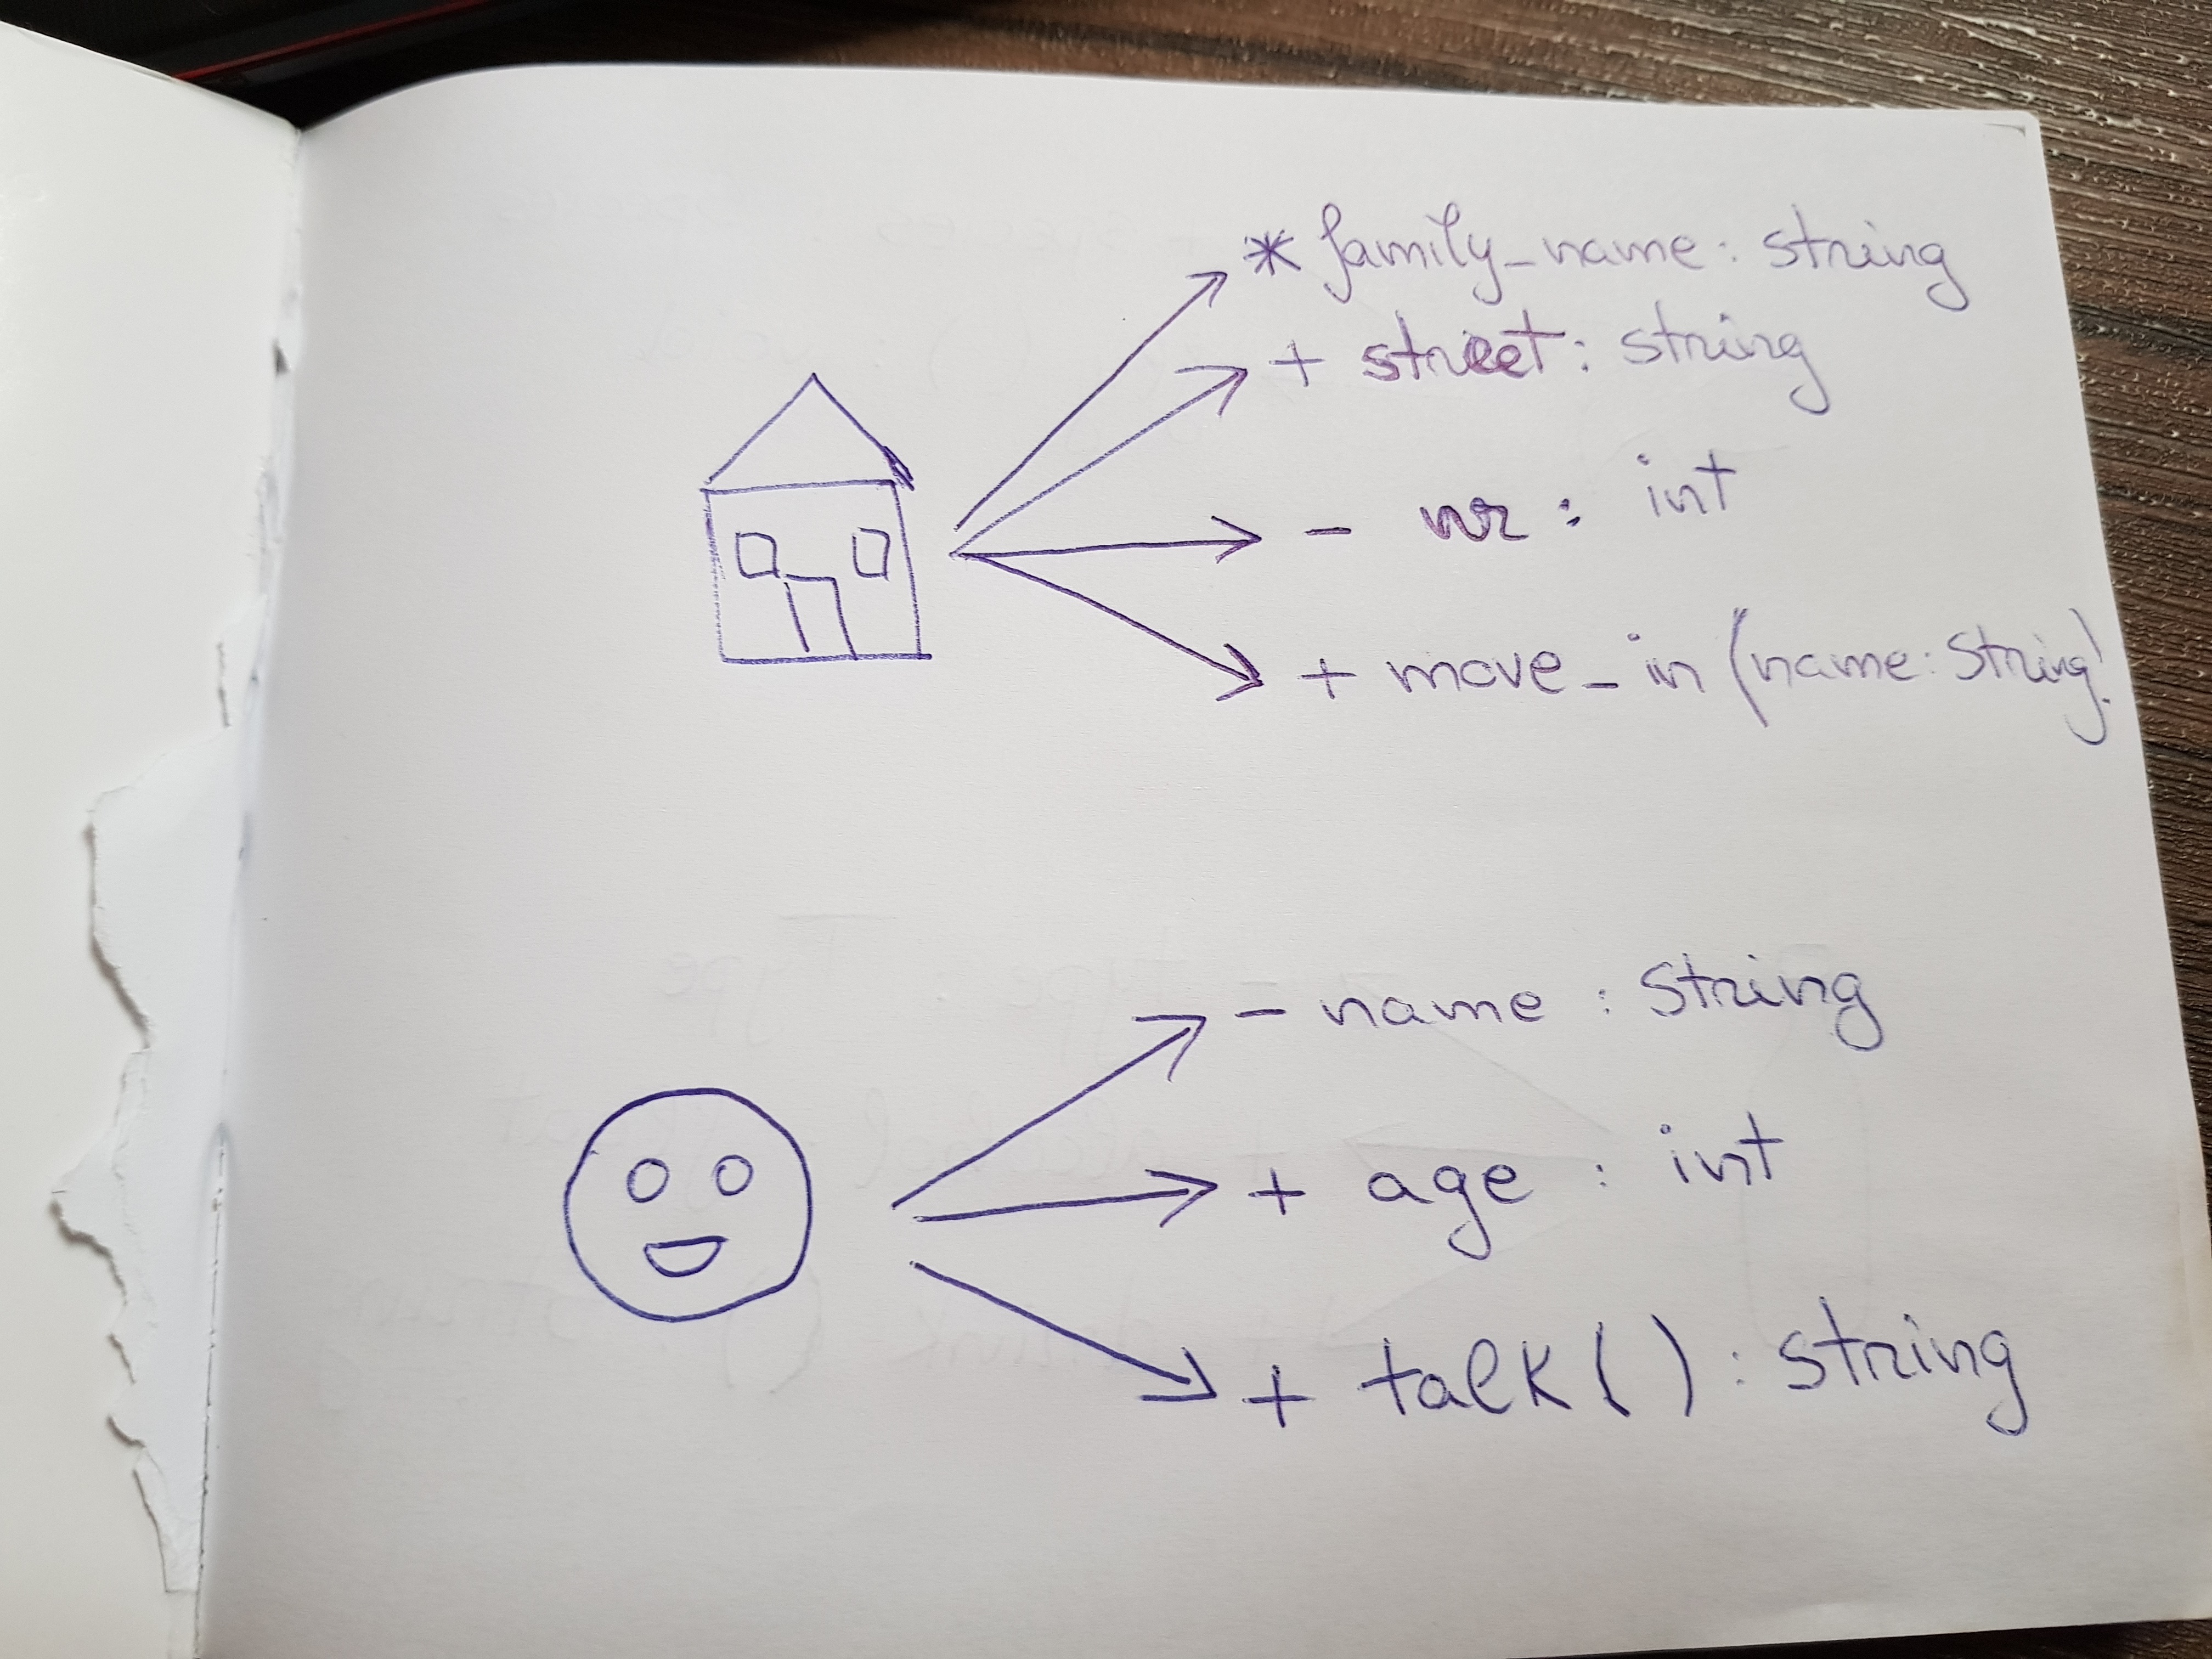 * family_name: string
+ street: string
- nr: int
+ move_in (name: String)
- name : String
+ age : int
+ talk( ) : string